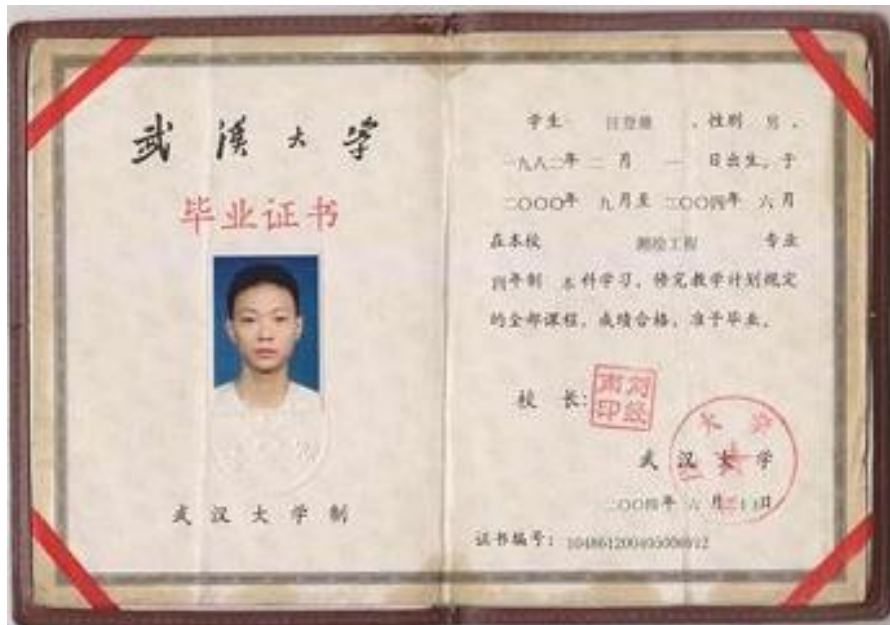 武汉大学
毕业证书
武汉大学制
学生 ，性别 男 ，
一九八二年 二 月 一 日出生，于
二〇〇〇年 九 月至 二〇〇四年 六 月
在本校 测绘工程 专业
四年制 本 科学习，修完教学计划规定
的全部课程，成绩合格，准予毕业。
校 长：
武 汉 大 学
二〇〇四年 六 月 日
证书编号：